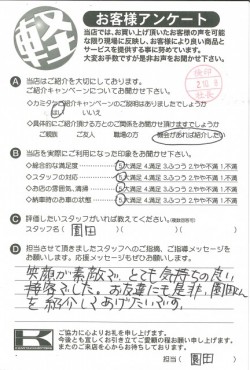 軽
お客様アンケート
当店では、お買い上げ頂いたお客様の声を可能
な限り現場に反映し、お客様により良い商品と
サービスを提供する事に努めています。
大変お手数ですが是非お声をお聞かせ下さい。
A 当店はご紹介を大切にしております。
ご紹介キャンペーンについてお聞かせ下さい。
◇カミタケご紹介キャンペーンのご説明はありましたでしょうか
はい いいえ
◇具体的にご紹介頂ける方とのご関係をお聞かせ頂けますでしょうか
ご親族 ご友人 職場の方 機会があれば紹介したい
B 当店を実際にご利用になった印象をお聞かせ下さい。
◇総合的な満足度 5大満足 4.満足 3.ふつう 2.やや不満 1.不満
◇スタッフの対応 5大満足 4.満足 3.ふつう 2.やや不満 1.不満
◇お店の雰囲気、清掃 5大満足 4.満足 3.ふつう 2.やや不満 1.不満
◇納車時のお車の状態 5大満足 4.満足 3.ふつう 2.やや不満 1.不満
C 評価したいスタッフがいれば教えてください。(複数回答可)
スタッフ名( 園田 )( )
D 担当させて頂きましたスタッフへのご指摘、ご指導メッセージを
お願いします。応援メッセージもぜひお願いします。
笑顔が素敵で、とても気持ちの良い
接客でした。お友達にも是非、園田さん
を紹介してあげたいです。
K
ご協力に心よりお礼を申し上げます。
今後とも宜しくお引き立てご愛顧の程お願い申し上げます。
またのご来店を心からお待ちしております。
担当( 園田 )